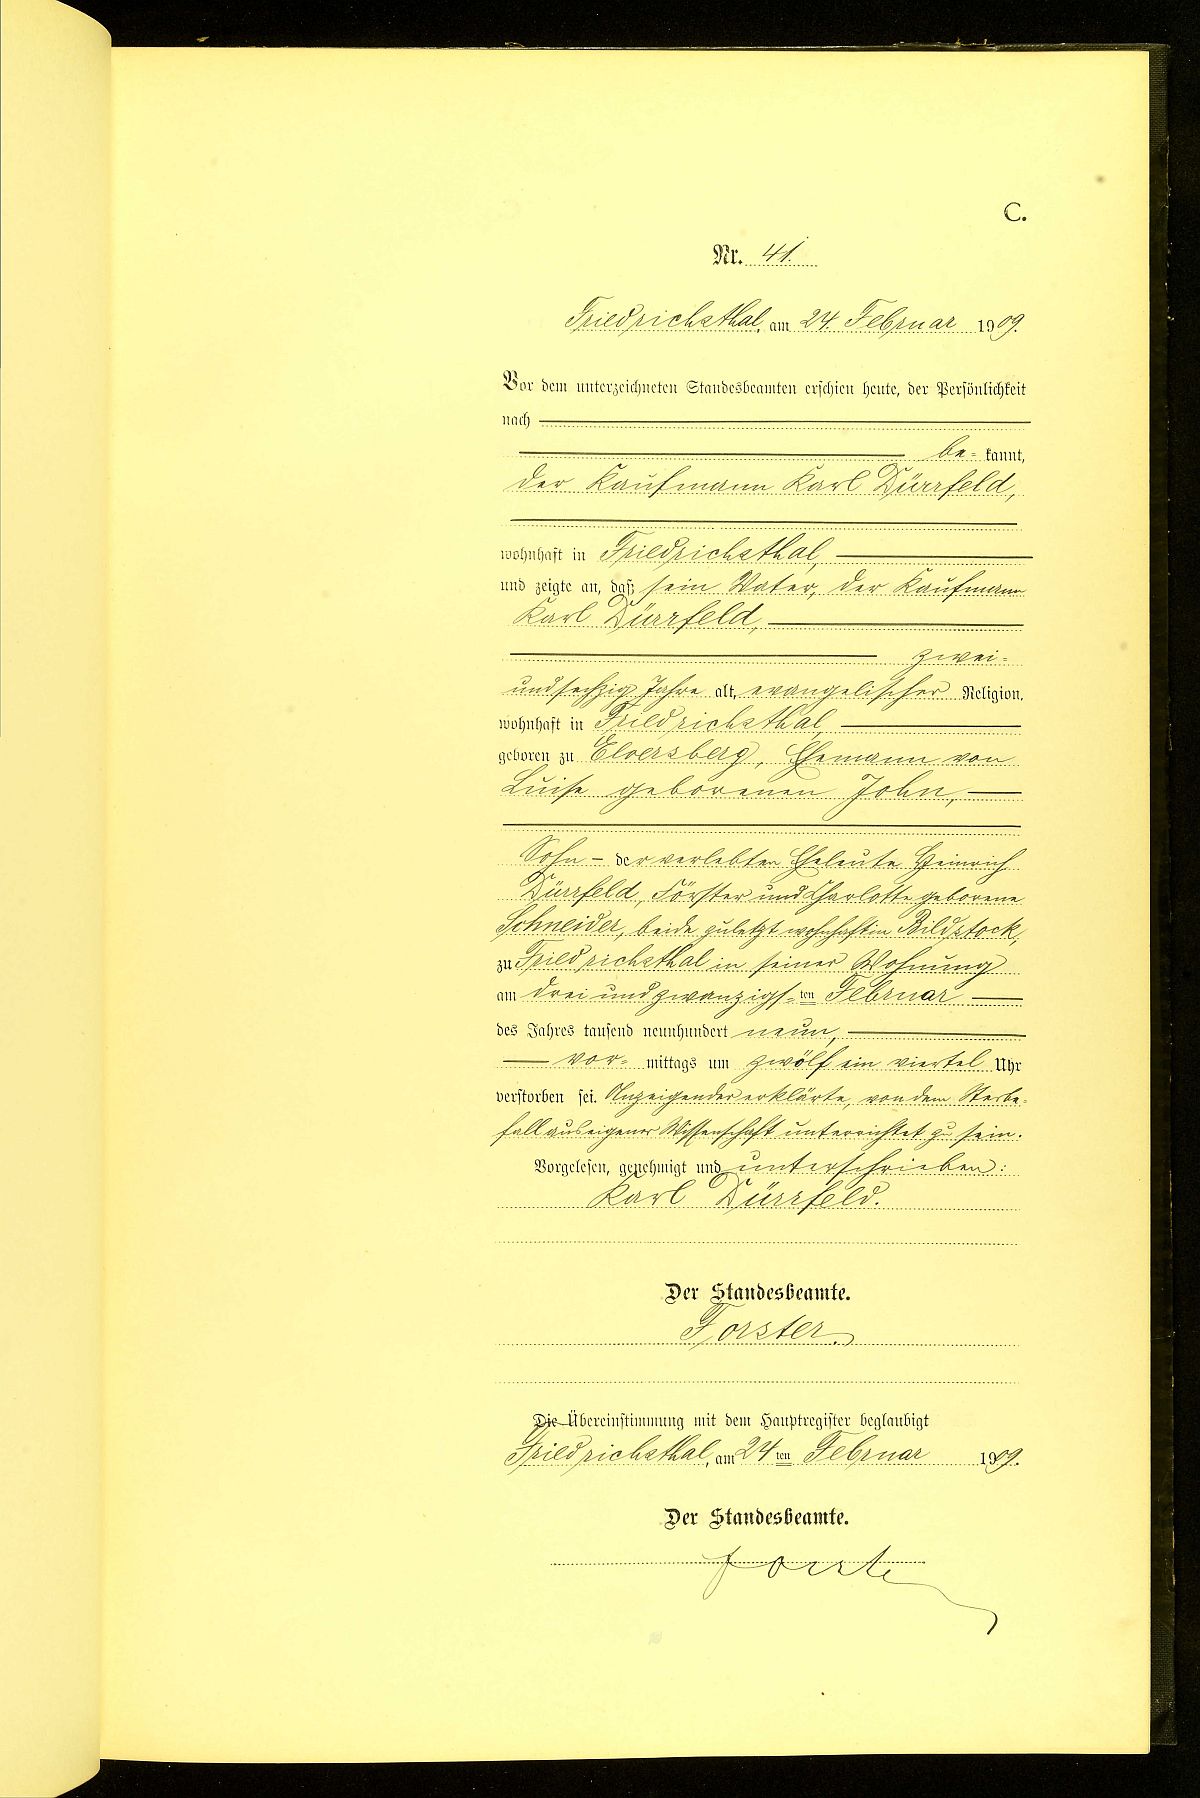 C.
Nr. 41.
Friedrichsthal, am 24. Februar 1909.
Vor dem unterzeichneten Standesbeamten erschien heute, der Persönlichkeit
nach
be= kannt,
der Kaufmann Karl Dürrfeld,
wohnhaft in Friedrichsthal,
und zeigte an, daß sein Vater, der Kaufmann
Karl Dürrfeld,
zwei=
undsechzig Jahre alt, evangelischer Religion,
wohnhaft in Friedrichsthal,
geboren zu Elversberg, Ehemann von
Luise geborenen John,
Sohn – der verlebten Eheleute Heinrich
Dürrfeld, Förster und Charlotte geborene
Schneider, beide zuletzt wohnhaft in Bildstock,
zu Friedrichsthal in seiner Wohnung
am dreiundzwanzigs=ten Februar
des Jahres tausend neunhundert neun,
vor= mittags um zwölf ein viertel Uhr
verstorben sei. Anzeigender erklärte, von dem Sterbe=
fall aus eigener Wissenschaft unterrichtet zu sein.
Vorgelesen, genehmigt und unterschrieben:
Karl Dürrfeld.
Der Standesbeamte.
Forster.
Die Übereinstimmung mit dem Hauptregister beglaubigt
Friedrichsthal, am 24ten Februar 1909.
Der Standesbeamte.
Forster